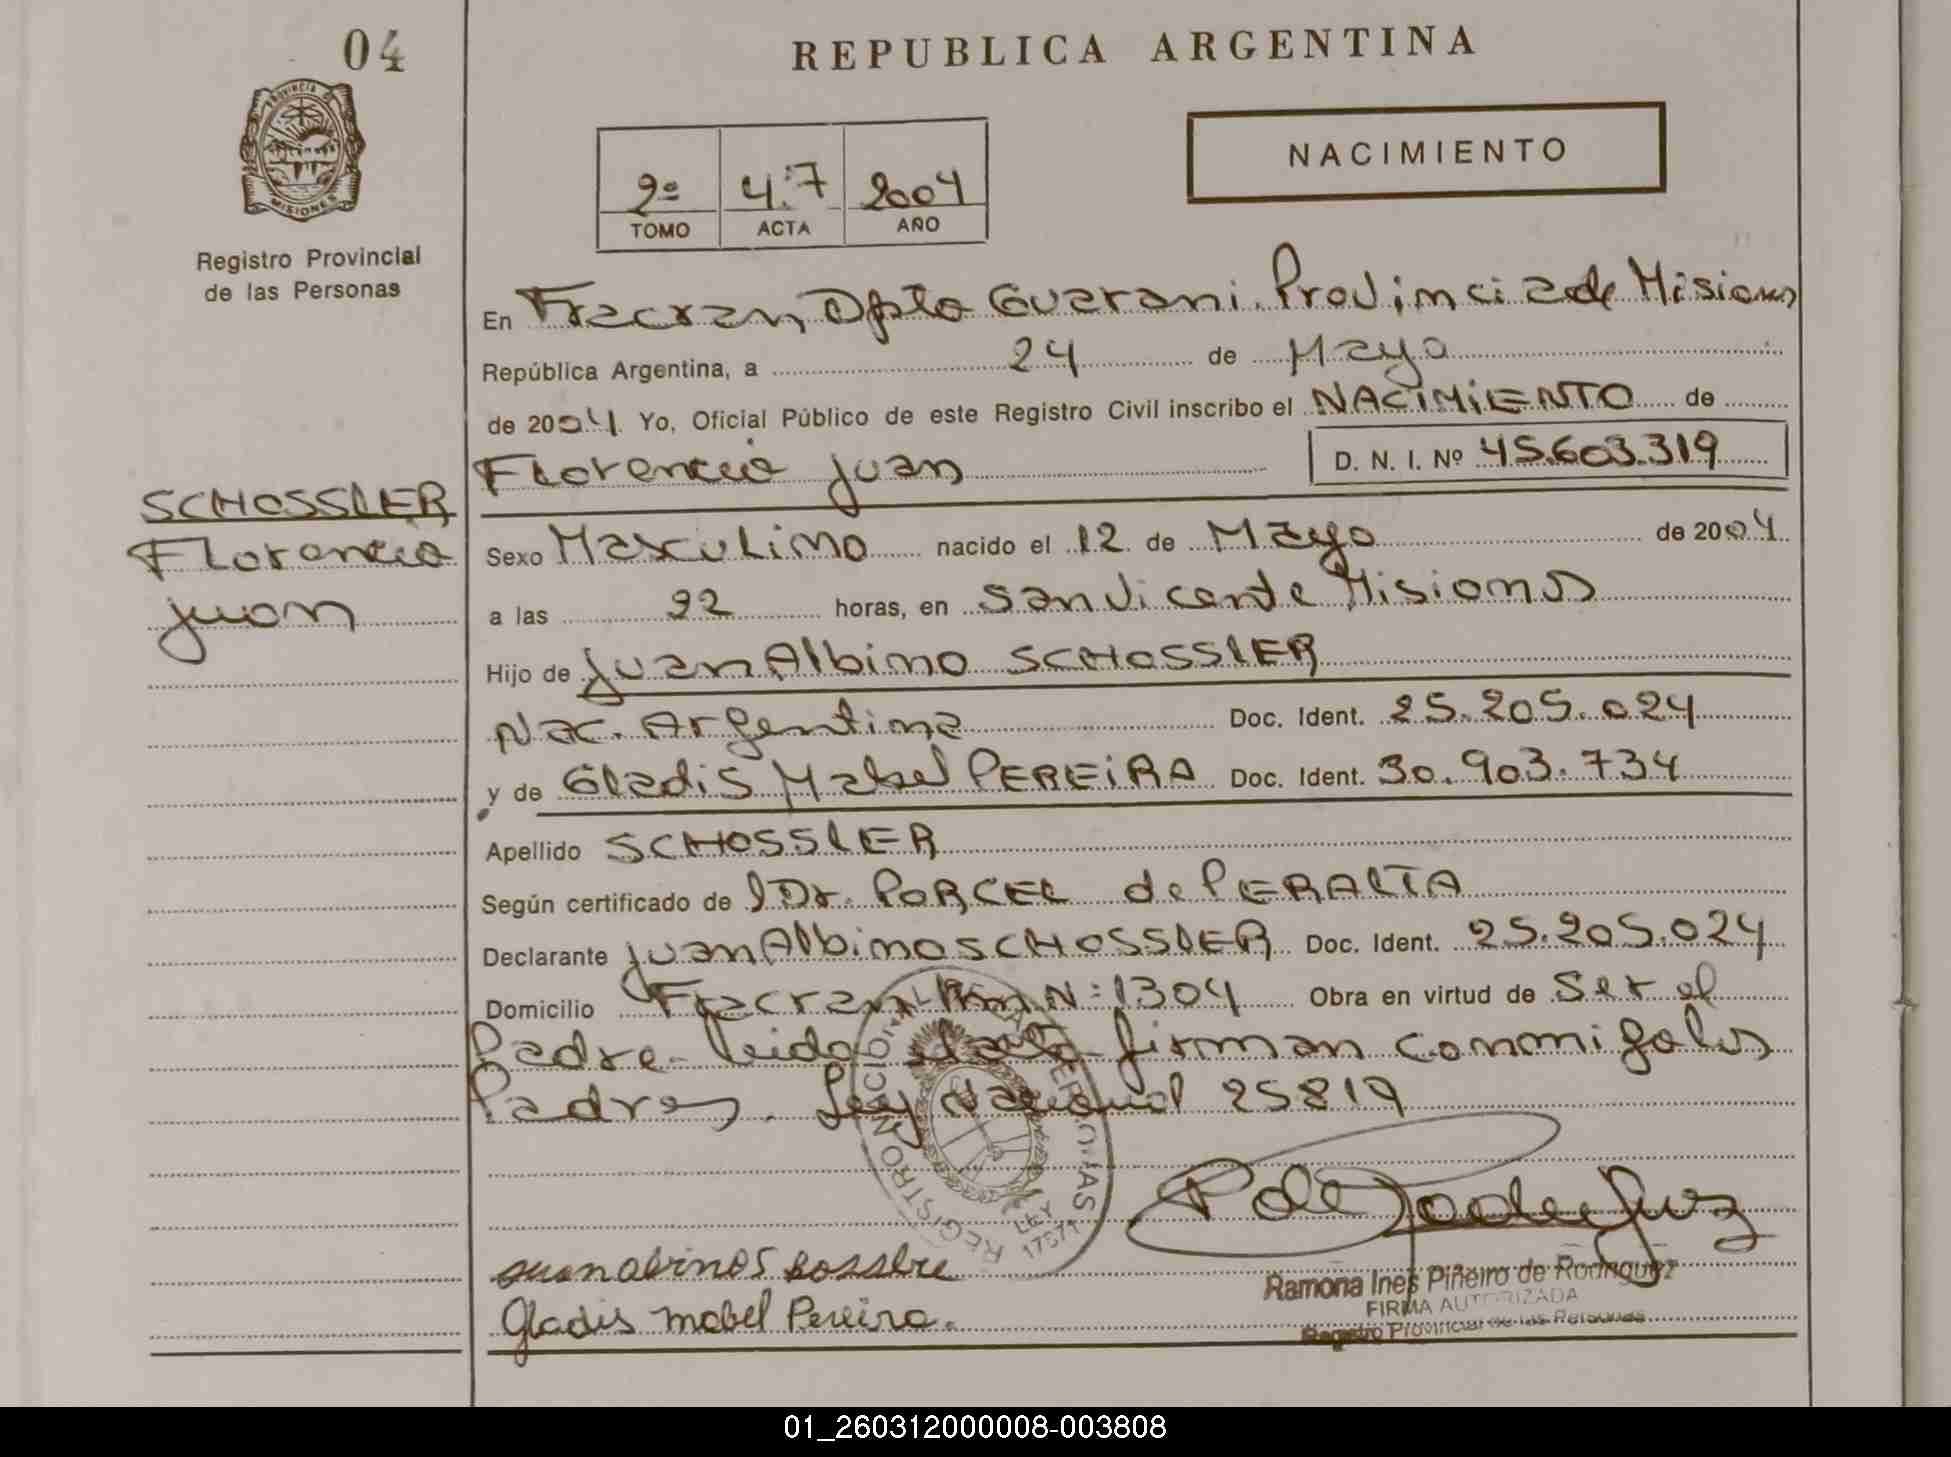 04
REPUBLICA ARGENTINA
PROVINCIA DE
MISIONES
Registro Provincial
de las Personas
NACIMIENTO
2º 47 2004
TOMO ACTA AÑO
En Fracran, Dpto Guarani. Provincia de Misiones
República Argentina, a 24 de Mayo
de 2004 Yo, Oficial Público de este Registro Civil inscribo el NACIMIENTO de
Florencio Juan D. N. I. Nº 45.603.319
SCHOSSLER
Florencio
Juan
Sexo Masculino nacido el 12 de Mayo de 2004
a las 22 horas, en San Vicente Misiones
Hijo de Juan Albino SCHOSSLER
Nac. Argentina Doc. Ident. 25.205.024
y de Gladis Mabel PEREIRA Doc. Ident. 30.903.734
Apellido SCHOSSLER
Según certificado de l Dr. PORCEL de PERALTA
Declarante Juan Albino SCHOSSLER Doc. Ident. 25.205.024
Domicilio Fracran Km Nº 1304 Obra en virtud de Ser el
Padre. Leida el acta firman conmigo los
Padres. Ley Nacional 25819
REGISTRO PROVINCIAL DE LAS PERSONAS
LEY
17671
Gladis Mabel Pereira.
Ramona Ines Piñeiro de Rodriguez
FIRMA AUTORIZADA
Registro Provincial de las Personas
01_260312000008-003808